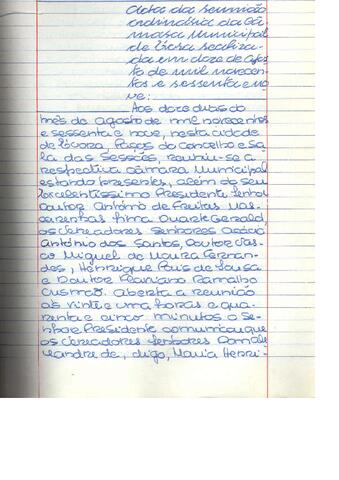 Acta da reunião
ordinária da Câ-
mara Municipal
de Évora realiza-
da em doze de Agos
to de mil novecen-
tos e sessenta e no
ve:
Aos doze dias do
mês de Agosto de mil novecentos
e sessenta e nove, nesta cidade
de Évora, Paços do Concelho e Sa
la das Sessões, reuniu-se a
respectiva Câmara Municipal
estando presentes, além do seu
Excelentíssimo Presidente Senhor
Doutor António de Freitas Mas-
carenhas Gerald,
os Vereadores Senhores Acácio
António dos Santos, Doutor Vas-
co Miguel de Moura Fernan-
des, Henrique Pais de Sousa
e Doutor Ramalho
Aberta a reunião
às vinte e uma horas e qua-
renta e cinco minutos o Se-
nhor Presidente comunicou que
os Vereadores Senhores Dom Ale
xandre de, digo, Maria Henri-